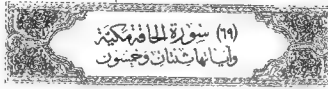 (٦٩) سُورَةُ الحَاقَّةِ مَكِيَّة
وَآيَاتُهَا ثِنْتَانِ وَخَمْسُون